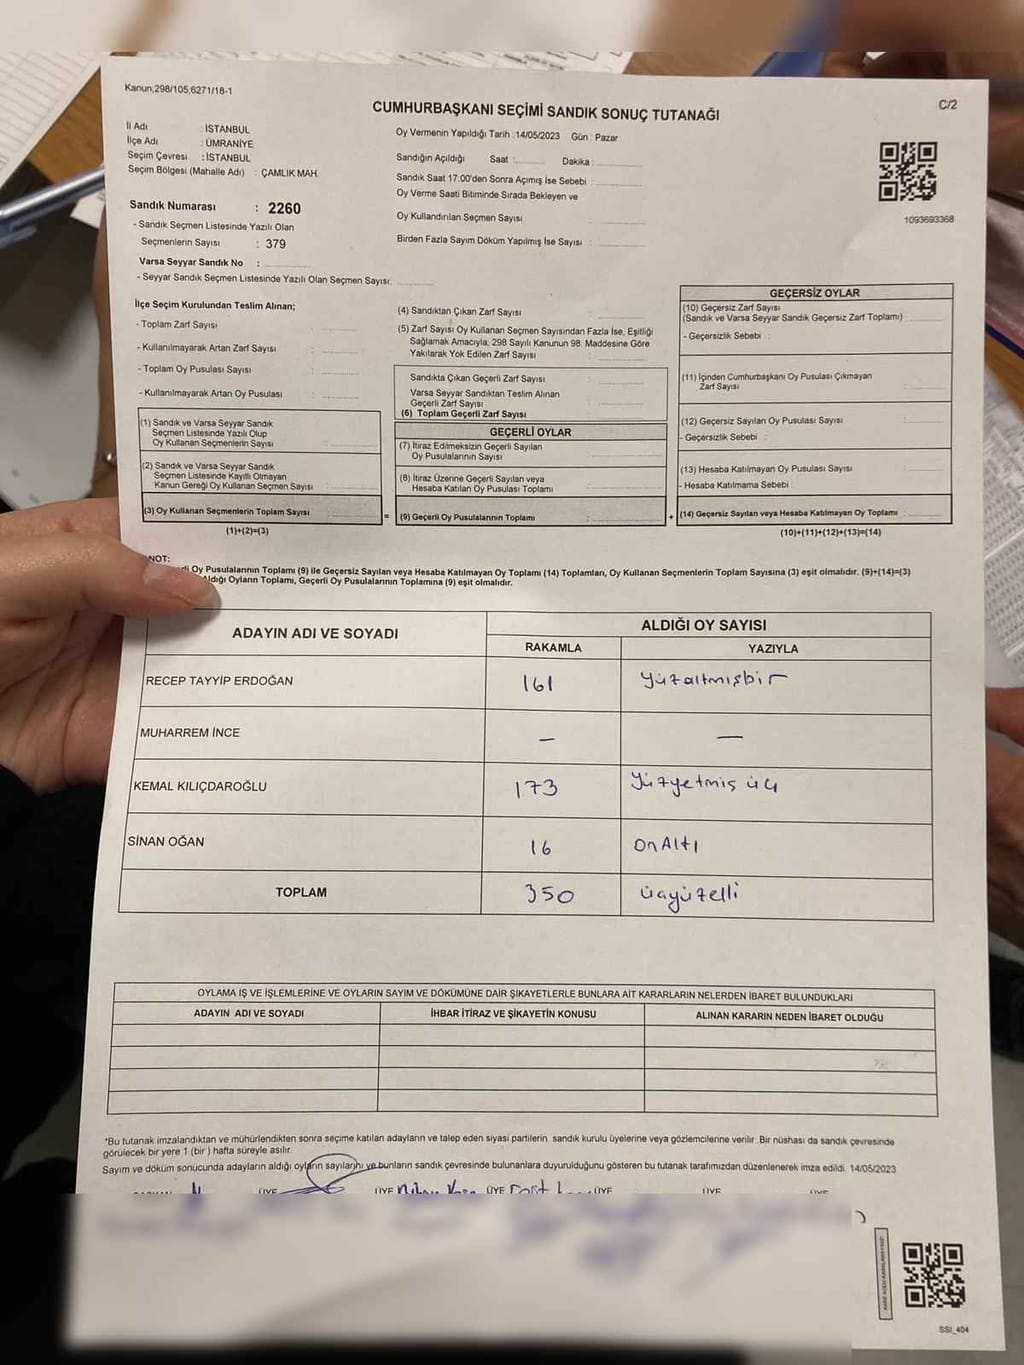 Kanun;298/105,6271/18-1
C/2
CUMHURBAŞKANI SEÇİMİ SANDIK SONUÇ TUTANAĞI
İl Adı : İSTANBUL
İlçe Adı : ÜMRANİYE
Seçim Çevresi : İSTANBUL
Seçim Bölgesi (Mahalle Adı) : ÇAMLIK MAH.
Sandık Numarası : 2260
- Sandık Seçmen Listesinde Yazılı Olan
Seçmenlerin Sayısı : 379
Varsa Seyyar Sandık No :
- Seyyar Sandık Seçmen Listesinde Yazılı Olan Seçmen Sayısı:
Oy Vermenin Yapıldığı Tarih :14/05/2023 Gün : Pazar
Sandığın Açıldığı Saat : Dakika :
Sandık Saat 17:00'den Sonra Açımış İse Sebebi :
Oy Verme Saati Bitiminde Sırada Bekleyen ve
Oy Kullandırılan Seçmen Sayısı :
Birden Fazla Sayım Döküm Yapılmış İse Sayısı :
1093693368
İlçe Seçim Kurulundan Teslim Alınan;
- Toplam Zarf Sayısı :
- Kullanılmayarak Artan Zarf Sayısı :
- Toplam Oy Pusulası Sayısı :
- Kullanılmayarak Artan Oy Pusulası :
(1) Sandık ve Varsa Seyyar Sandık
Seçmen Listesinde Yazılı Olup
Oy Kullanan Seçmenlerin Sayısı :
(2) Sandık ve Varsa Seyyar Sandık
Seçmen Listesinde Kayıtlı Olmayan
Kanun Gereği Oy Kullanan Seçmen Sayısı :
(3) Oy Kullanan Seçmenlerin Toplam Sayısı :
(1)+(2)=(3)
(4) Sandıktan Çıkan Zarf Sayısı :
(5) Zarf Sayısı Oy Kullanan Seçmen Sayısından Fazla İse, Eşitliği
Sağlamak Amacıyla, 298 Sayılı Kanunun 98. Maddesine Göre
Yakılarak Yok Edilen Zarf Sayısı :
Sandıkta Çıkan Geçerli Zarf Sayısı :
Varsa Seyyar Sandıktan Teslim Alınan
Geçerli Zarf Sayısı :
(6) Toplam Geçerli Zarf Sayısı :
GEÇERLİ OYLAR
(7) İtiraz Edilmeksizin Geçerli Sayılan
Oy Pusulalarının Sayısı :
(8) İtiraz Üzerine Geçerli Sayılan veya
Hesaba Katılan Oy Pusulası Toplamı :
= (9) Geçerli Oy Pusulalarının Toplamı :
GEÇERSİZ OYLAR
(10) Geçersiz Zarf Sayısı
(Sandık ve Varsa Seyyar Sandık Geçersiz Zarf Toplamı) :
- Geçersizlik Sebebi :
(11) İçinden Cumhurbaşkanı Oy Pusulası Çıkmayan
Zarf Sayısı :
(12) Geçersiz Sayılan Oy Pusulası Sayısı :
- Geçersizlik Sebebi :
(13) Hesaba Katılmayan Oy Pusulası Sayısı :
- Hesaba Katılmama Sebebi :
+ (14) Geçersiz Sayılan veya Hesaba Katılmayan Oy Toplamı :
(10)+(11)+(12)+(13)=(14)
NOT:
Oy Pusulalarının Toplamı (9) ile Geçersiz Sayılan veya Hesaba Katılmayan Oy Toplamı (14) Toplamları, Oy Kullanan Seçmenlerin Toplam Sayısına (3) eşit olmalıdır. (9)+(14)=(3)
Aldığı Oyların Toplamı, Geçerli Oy Pusulalarının Toplamına (9) eşit olmalıdır.
ADAYIN ADI VE SOYADI ALDIĞI OY SAYISI
RAKAMLA YAZIYLA
RECEP TAYYİP ERDOĞAN 161 Yüzaltmışbir
MUHARREM İNCE — —
KEMAL KILIÇDAROĞLU 173 Yüzyetmiş üç
SİNAN OĞAN 16 OnAltı
TOPLAM 350 üçyüzelli
OYLAMA İŞ VE İŞLEMLERİNE VE OYLARIN SAYIM VE DÖKÜMÜNE DAİR ŞİKAYETLERLE BUNLARA AİT KARARLARIN NELERDEN İBARET BULUNDUKLARI
ADAYIN ADI VE SOYADI İHBAR İTİRAZ VE ŞİKAYETİN KONUSU ALINAN KARARIN NEDEN İBARET OLDUĞU
*Bu tutanak imzalandıktan ve mühürlendikten sonra seçime katılan adayların ve talep eden siyasi partilerin sandık kurulu üyelerine veya gözlemcilerine verilir. Bir nüshası da sandık çevresinde
görülecek bir yere 1 (bir ) hafta süreyle asılır.
Sayım ve döküm sonucunda adayların aldığı oyların sayılarını ve bunların sandık çevresinde bulunanlara duyurulduğunu gösteren bu tutanak tarafımızdan düzenlenerek imza edildi. 14/05/2023
ÜYE ÜYE ÜYE ÜYE ÜYE ÜYE
SSI_404